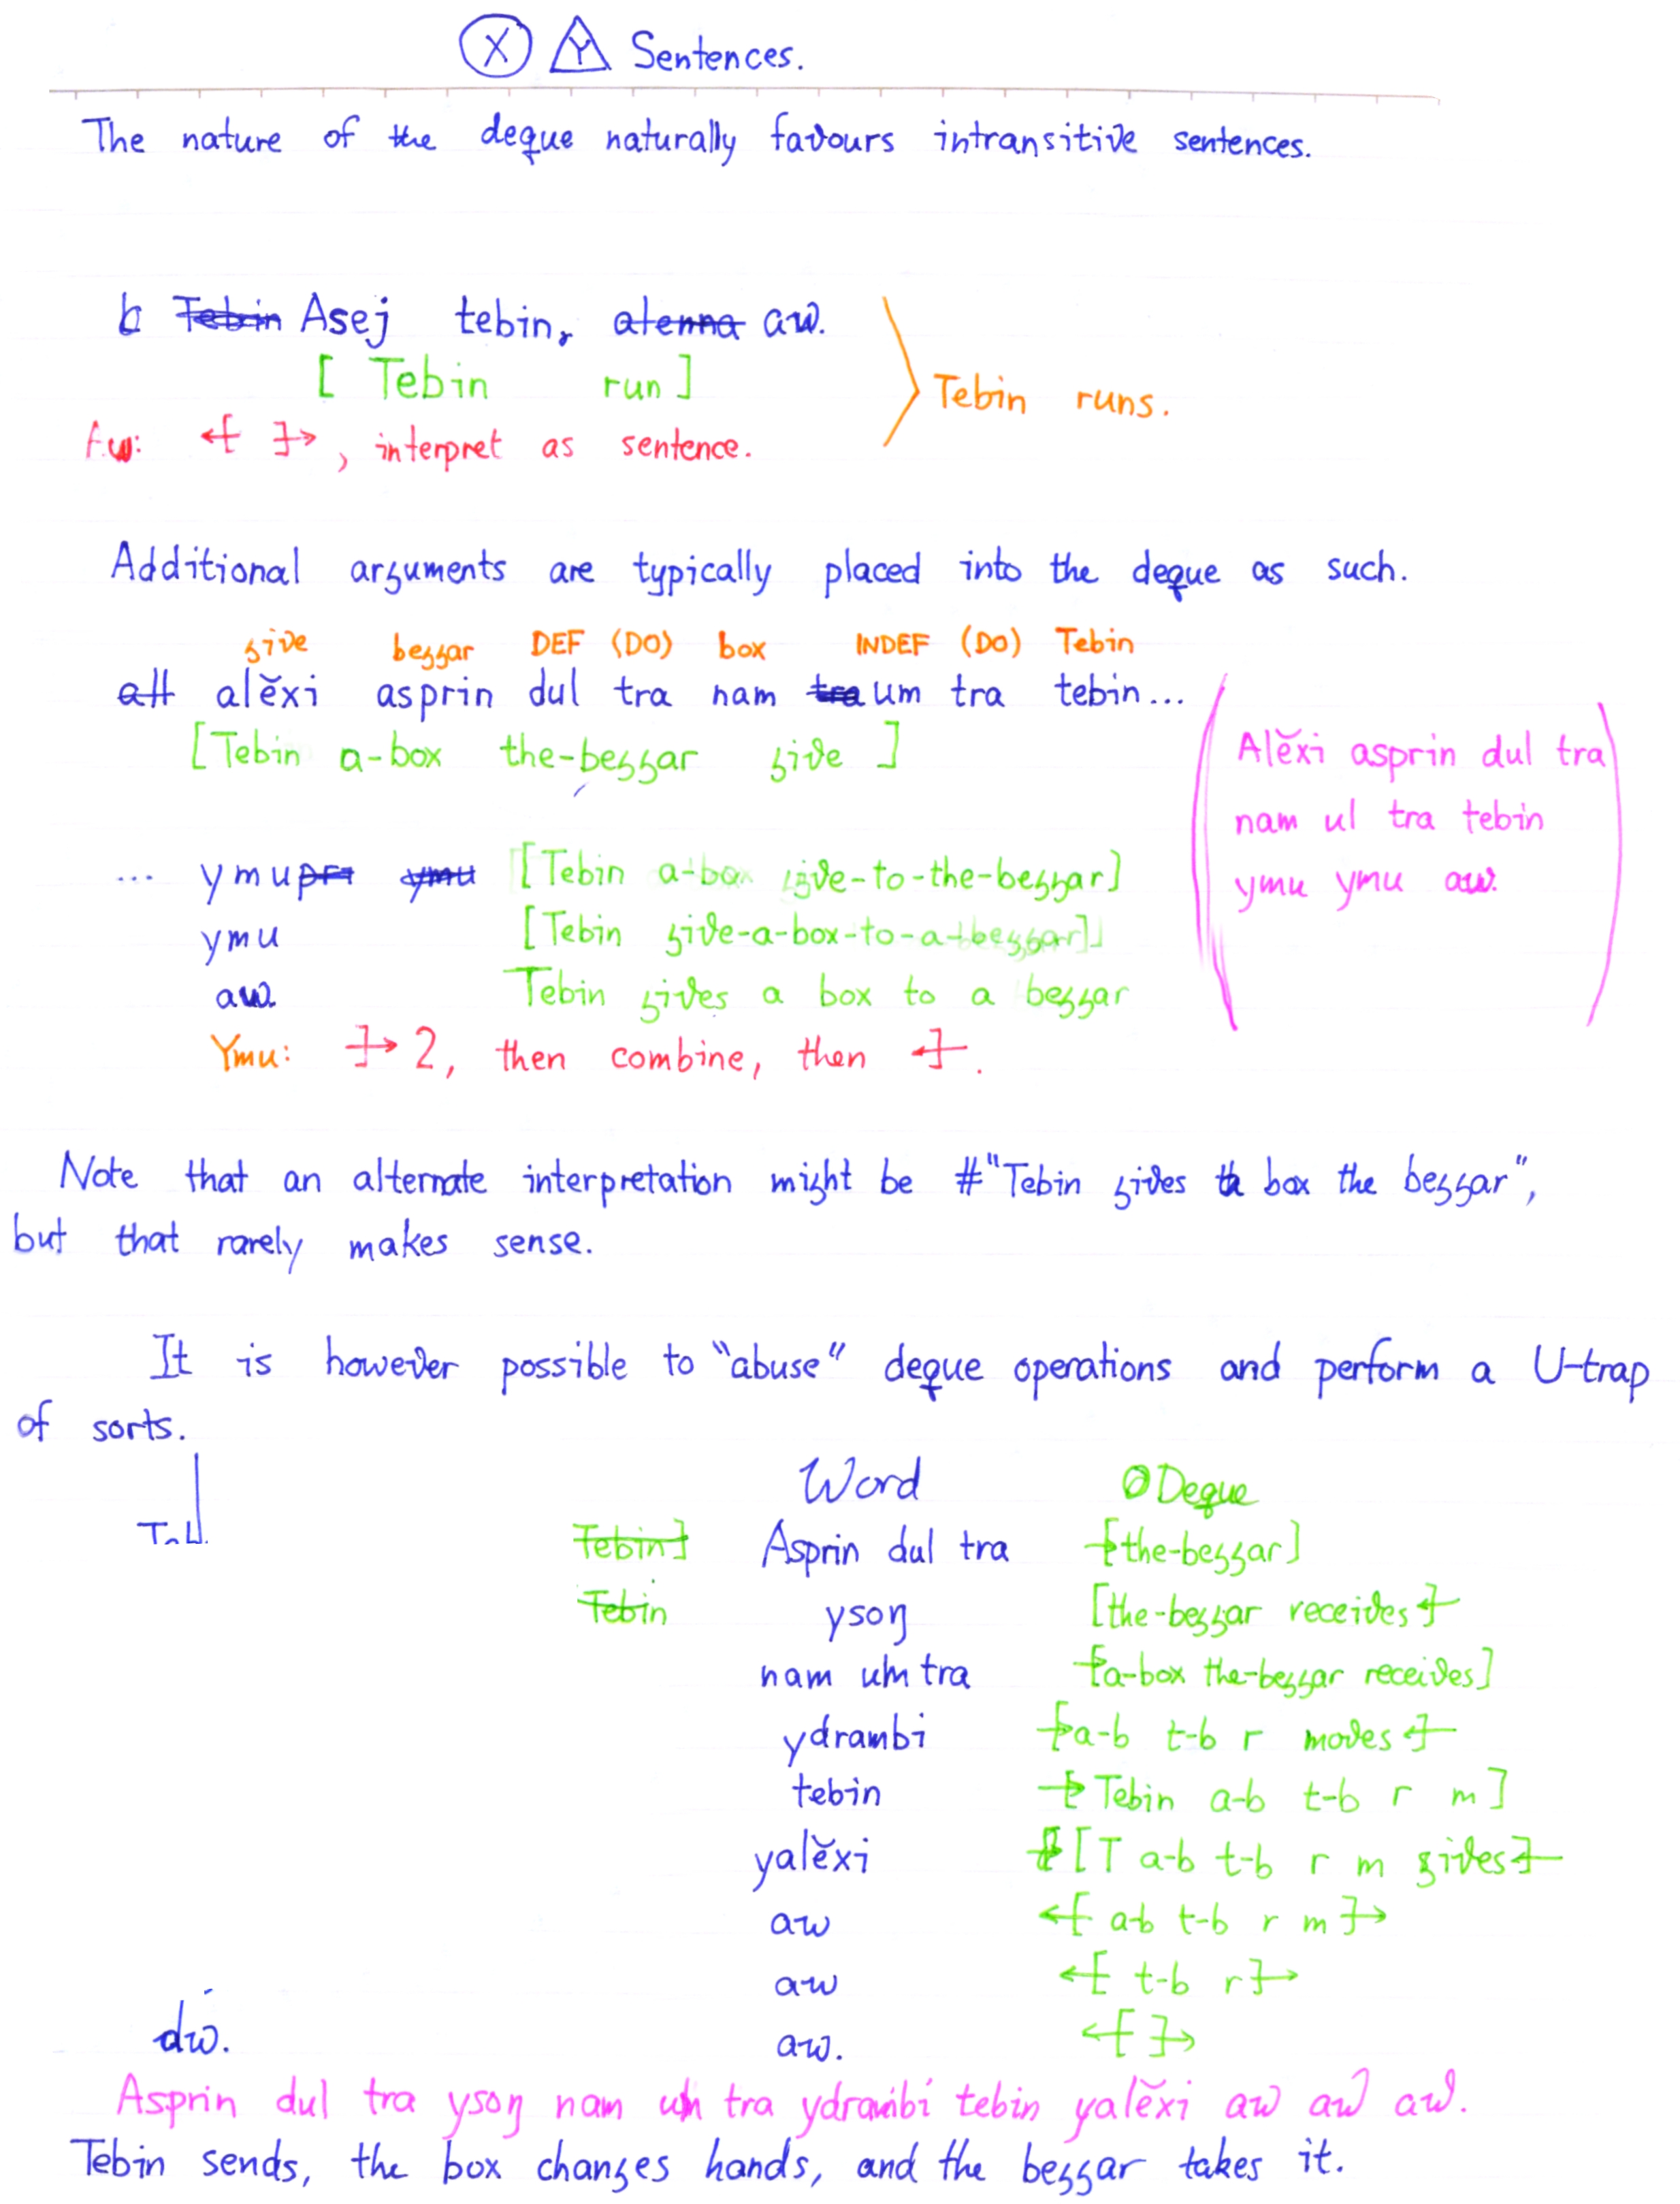 X Y Sentences.
The nature of the deque naturally favours intransitive sentences.
Tebin Asej tebin, atenna aw.
[ Tebin run ]
Tebin runs.
Aw: ←[ ]→, interpret as sentence.
Additional arguments are typically placed into the deque as such.
give beggar DEF (DO) box INDEF (DO) Tebin
alĕxi asprin dul tra nam tra um tra tebin...
[Tebin a-box the-beggar give ]
Alĕxi asprin dul tra
nam ul tra tebin
ymu ymu aw.
... ymu ymu [Tebin a-box give-to-the-beggar]
ymu [Tebin give-a-box-to-a-beggar]
aw. Tebin gives a box to a beggar
Ymu: ]→ 2, then combine, then ←].
Note that an alternate interpretation might be #"Tebin gives a box the beggar",
but that rarely makes sense.
It is however possible to "abuse" deque operations and perform a U-trap
of sorts.
Word Deque
Tebin] Asprin dul tra →[the-beggar]
Tebin ysoŋ [the-beggar receives ←]
nam um tra →[a-box the-beggar receives]
ydrambi →[a-b t-b r moves ←]
tebin →[Tebin a-b t-b r m]
yalĕxi [T a-b t-b r m gives ←]
aw ←[ a-b t-b r m ]→
aw ←[ t-b r ]→
aw. ←[ ]→
Asprin dul tra ysoŋ nam um tra ydrambi tebin yalĕxi aw aw aw.
Tebin sends, the box changes hands, and the beggar takes it.